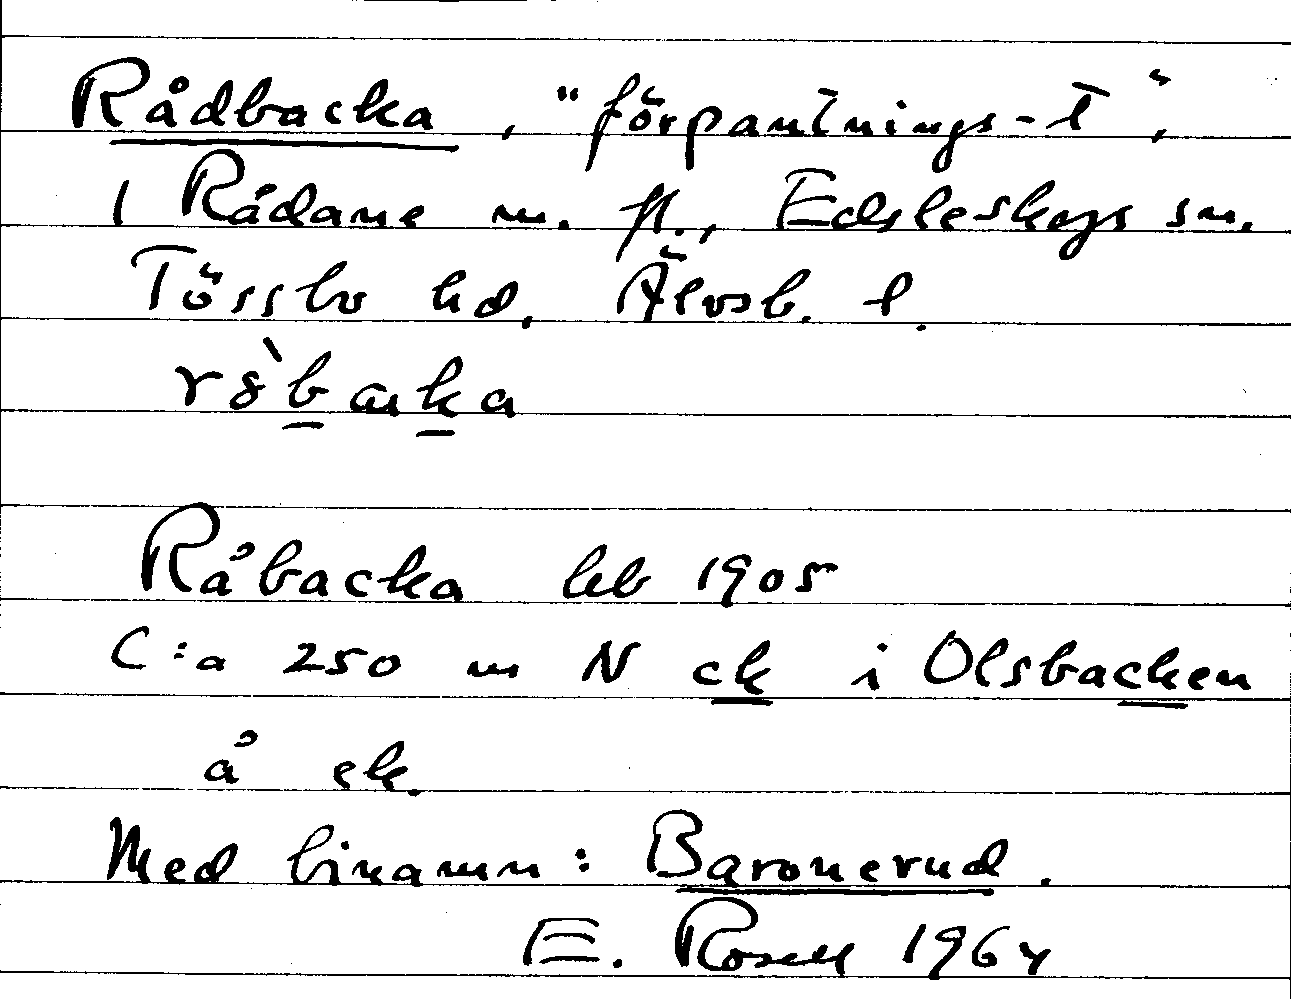 Rådbacka, "förpantnings-t",
i Rådane m. fl., Edsleskogs sn.
Tössbo hd, Älvsb. l.
Råbacka hb 1905
C:a 250 m N ck i Olsbacken
å ek.
Med binamn: Baronerud.
E. Rosell 1964